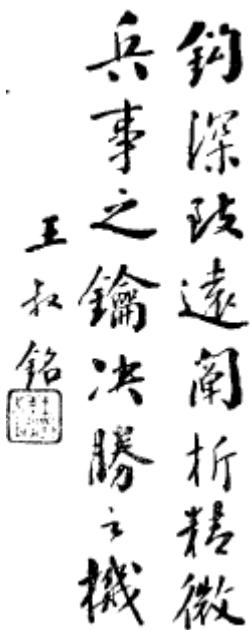 鈎深致遠闡析精微
兵事之鑰决勝之機
王叔銘